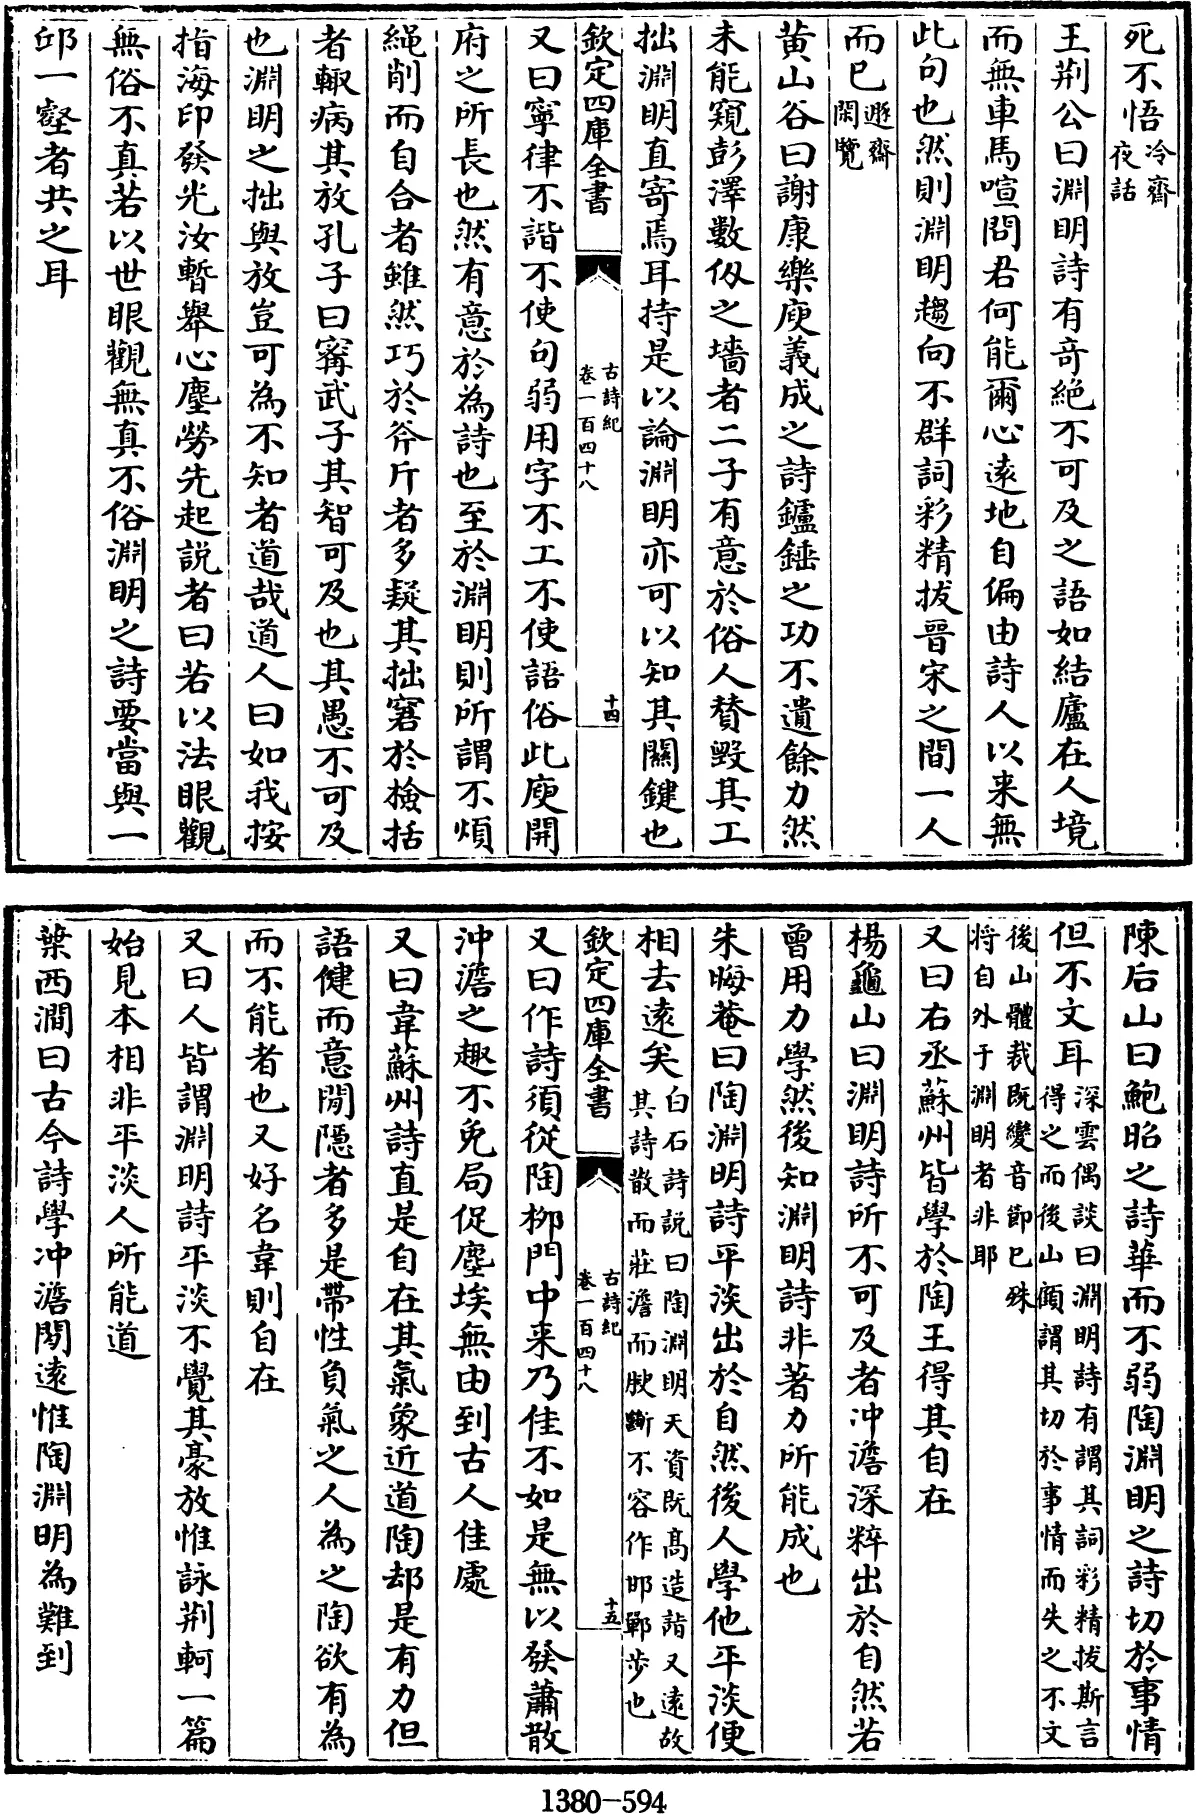 死不悟冷齋夜話
王荆公曰淵明詩有竒絶不可及之語如結廬在人境
而無車馬喧問君何能爾心逺地自偏由詩人以来無
此句也然則淵明趨向不群詞彩精拔晉宋之間一人
而已遯齋閑覽
黄山谷曰謝康樂庾義成之詩鑪錘之功不遺餘力然
未能窺彭澤數仭之墻者二子有意於俗人賛毀其工
拙淵明直寄焉耳持是以論淵明亦可以知其關鍵也
欽定四庫全書
古詩紀
卷一百四十八
十四
又曰寧律不諧不使句弱用字不工不使語俗此庾開
府之所長也然有意於為詩也至於淵明則所謂不煩
繩削而自合者雖然巧於斧斤者多疑其拙窘於檢括
者輙病其放孔子曰甯武子其智可及也其愚不可及
也淵明之拙與放豈可為不知者道哉道人曰如我按
指海印發光汝暫舉心塵勞先起説者曰若以法眼觀
無俗不真若以世眼觀無真不俗淵明之詩要當與一
邱一壑者共之耳
陳后山曰鮑昭之詩華而不弱陶淵明之詩切於事情
但不文耳深雲偶談曰淵明詩有謂其詞彩精拔斯言得之而後山顧謂其切於事情而失之不文
後山體裁既變音節已殊将自外于淵明者非耶
又曰右丞蘇州皆學於陶王得其自在
楊龜山曰淵明詩所不可及者冲澹深粹出於自然若
曾用力學然後知淵明詩非著力所能成也
朱晦菴曰陶淵明詩平淡出於自然後人學他平淡便
相去逺矣白石詩説曰陶淵明天資既髙造詣又逺故其詩散而莊澹而腴斷不容作邯鄲步也
欽定四庫全書
古詩紀
卷一百四十八
十五
又曰作詩須從陶栁門中来乃佳不如是無以發蕭散
沖澹之趣不免局促塵埃無由到古人佳處
又曰韋蘇州詩直是自在其氣象近道陶却是有力但
語健而意閒隠者多是帶性負氣之人為之陶欲有為
而不能者也又好名韋則自在
又曰人皆謂淵明詩平淡不覺其豪放惟詠荆軻一篇
始見本相非平淡人所能道
葉西澗曰古今詩學冲澹閒逺惟陶淵明為難到
1380-594